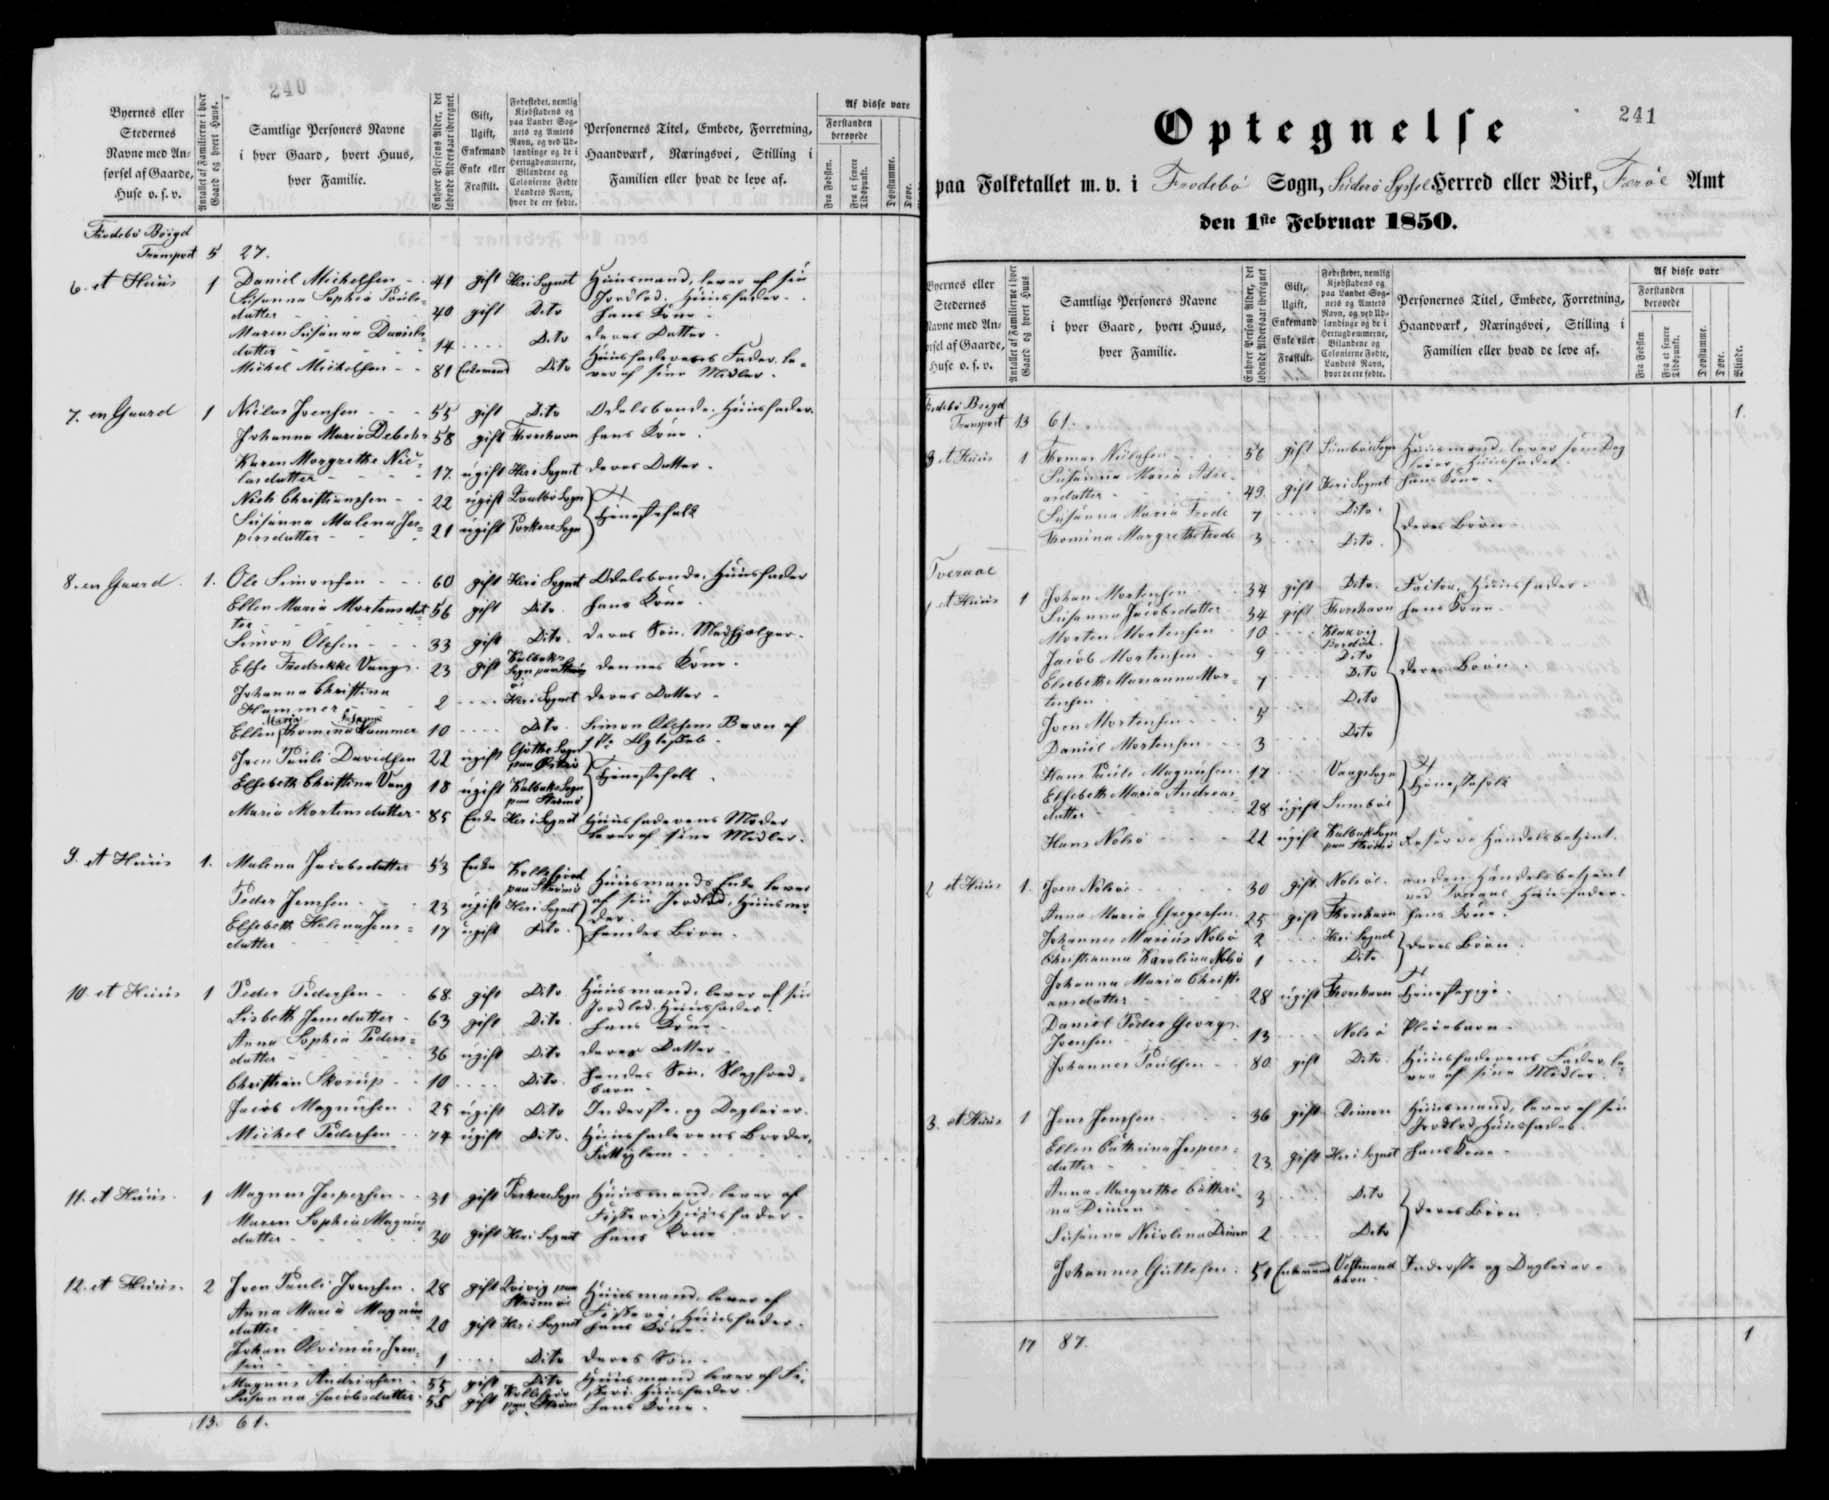 240
Byernes eller Stedernes Navne med Anførsel af Gaarde, Huse o. s. v.
Antallet af Familierne i hver Gaard og hvert Huus.
Samtlige Personers Navne i hver Gaard, hvert Huus, hver Familie.
Enhver Persons Alder, det løbende Aldersaar iberegnet.
Gift, Ugift, Enkemand Enke eller Fraskilt.
Fødestedet, nemlig Kjøbstadens og paa Landet Sognets og Amtets Navn, og ved Udlændinge og de i Hertugdømmerne, Bilandene og Colonierne Fødte Landets Navn, hvor de ere fødte.
Personernes Titel, Embede, Forretning, Haandværk, Næringsvei, Stilling i Familien eller hvad de leve af.
Af disse vare
Forstanden berøvede
Fra Fødslen.
Fra et senere Tidspunkt.
Døvstumme.
Døve.
Frodebø Bøigd
Transport 5 27.
6. et Huus 1 Daniel Michelsen 41 gift Her i Sognet Huusmand, lever af sin Jordlod. Huusfader.
Susanna Sophia Pouls= datter 40 gift Dito hans Kone.
Maren Susanna Daniels= datter 14 .... Dito deres Datter.
Michel Michelsen 81 Enkemand Dito Huusfaderens Fader, le= ver af sine Midler.
7. en Gaard 1 Niclas Joensen 55 gift Dito Odelsbonde. Huusfader.
Johanna Maria Debes 58 gift Thorshavn hans Kone.
Karen Morgrethe Nic= lasdatter 17. ugift Her i Sognet deres Datter.
Nick Christiansen 22 ugift Qvalbø Sogn } Tjenestefolk
Susanna Malena Jes= persdatter 21 ugift Porkere Sogn
8. en Gaard. 1. Ole Simonsen 60 gift Her i Sognet Odelsbonde. Huusfader
Ellen Maria Mortensdat= ter 56 gift Dito. hans Kone.
Simon Olesen 33 gift Dito. deres Søn. Medhjælper.
Else Fredrikke Vang 23 gift Kalbaks Sogn paa Strømø dennes Kone.
Johanna Christina Hammer 2 .... Her i Sognet deres Datter.
Ellen Maria Thomina Susanna Hammer 10 .... Dito Simon Olesens Barn af 1ste Ægteskab.
Joen Pauli Davidsen 22 ugift Gøthe Sogn paa Østerø } Tjenestefolk.
Elsebeth Christina Vang 18 ugift Kalbaks Sogn paa Strømø
Maria Mortensdatter 85 Enke Her i Sognet Huusfaderens Moder lever af sine Midler.
9. et Huus 1. Malena Jacobsdatter 53 Enke Kollefjord paa Strømø Huusmands Enke lever af sin Jordlod, Huusmo= der.
Peder Jensen 23 ugift Her i Sognet } hendes Børn.
Elsebeth Helena Jens= datter 17 ugift Dito.
10. et Huus 1 Peder Pedersen 68. gift Dito Huusmand, lever af sin Jordlod. Huusfader.
Lisbeth Jensdatter 63 gift Dito. hans Kone.
Anna Sophia Peders= datter 36 ugift Dito deres Datter
Christian Skorup 10 .... Dito. hendes Søn. Slegfred= barn.
Jacob Magnusen 25 ugift Dito Inderste og Dagleier.
Michel Pedersen 74 ugift Dito. Huusfaderens Broder, Fattiglem
11. et Huus. 1 Magnus Jespersen 31 gift Porkere Sogn Huusmand, lever af Fiskeri. Huusfader.
Maren Sophia Magnus datter 30 gift Her i Sognet hans Kone
12. et Huus. 2 Joen Pauli Joensen 28 gift Qvivig paa Strømøe Huusmand, lever af Fiskeri. Huusfader.
Anna Maria Magnus datter 20 gift Her i Sognet hans Kone.
Johan Joen= sen 1 .... Dito deres Søn.
Magnus Andriasen 55 gift Dito Huusmand lever af Fi= skeri Huusfader.
Susanna Jacobsdatter 55 gift Kollefjord paa Strømø hans Kone.
13. 61.
241
Optegnelse
paa Folketallet m. v. i Frodebø Sogn, Suderø Syssel Herred eller Birk, Færøe Amt
den 1ste Februar 1850.
Byernes eller Stedernes Navne med Anførsel af Gaarde, Huse o. s. v.
Antallet af Familierne i hver Gaard og hvert Huus
Samtlige Personers Navne i hver Gaard, hvert Huus, hver Familie.
Enhver Persons Alder, det løbende Aldersaar iberegnet
Gift, Ugift, Enkemand Enke eller Fraskilt.
Fødestedet, nemlig Kjøbstadens og paa Landet Sognets og Amtets Navn, og ved Udlændinge og de i Hertugdømmerne, Bilandene og Colonierne Fødte, Landets Navn, hvor de ere fødte.
Personernes Titel, Embede, Forretning, Haandværk, Næringsvei, Stilling i Familien eller hvad de leve af.
Af disse vare
Forstanden berøvede
Fra Fødslen
Fra et senere Tidspunkt.
Døvstumme.
Døve.
Blinde.
Frodebø Bøigd
Transport 13 61. 1.
3 et Huus 1 Thomas Nielsen 56 gift Sumbø Sogn Huusmand, lever som Dag leier. Huusfader.
Susanna Maria Adri= asdatter 49. gift Her i Sognet hans Kone.
Susanna Maria Frode 7 .... Dito. } deres Børn.
Thomina Margrethe Frode 3 .... Dito.
Tveraae
1 et Huus 1 Johan Mortensen 34 gift Dito. Factor, Huusfader.
Susanna Jacobsdatter 34 gift Thorshavn hans Kone.
Morten Mortensen 10 .... Klaksvig Bordøe. } deres Børn.
Jacob Mortensen 9 .... Dito
Elsebeth Marianna Mor= tensen 7 .... Dito
Joen Mortensen 5 .... Dito
Daniel Mortensen 3 .... Dito
Hans Pauli Magnusen. 17 .... Vaags Sogn } Tjenestefolk
Elsebeth Maria Andreas datter 28 ugift Sumbøe
Hans Nolsø 22 ugift Kalbak Sogn paa Strømø Reserve Handelsbetjent.
2 et Huus 1. Joen Nolsøe 30 gift. Nolsøe. anden Handelsbetjent ved Tveraae. Huusfader.
Anna Maria Gregersen 25 gift Thorshavn hans Kone.
Johannes Marius Nolsø 2 .... Her i Sognet } deres Børn.
Christianna Karolina Nolsø 1 .... Dito
Johanna Maria Christi ansdatter 28 ugift Thorshavn Tjenestepige.
Daniel Peder Georg Joensen 13 .... Nolsø Pleiebarn.
Johannes Poulsen 80. gift Dito. Huusfaderens Fader, le ver af sine Midler.
3. et Huus 1 Jens Jensen 36 gift Dimon Huusmand, lever af sin Jordlod, Huusfader.
Ellen Cathrina Jespers= datter 23 gift Her i Sognet hans Kone.
Anna Margrethe Cathri= na Dimon 3 .... Dito } deres Børn.
Susanna Nicolina Dimon 2 .... Dito
Johannes Guttesen. 51 Enkemand Vestmanhavn. Inderste og Dagleier.
17 87. 1